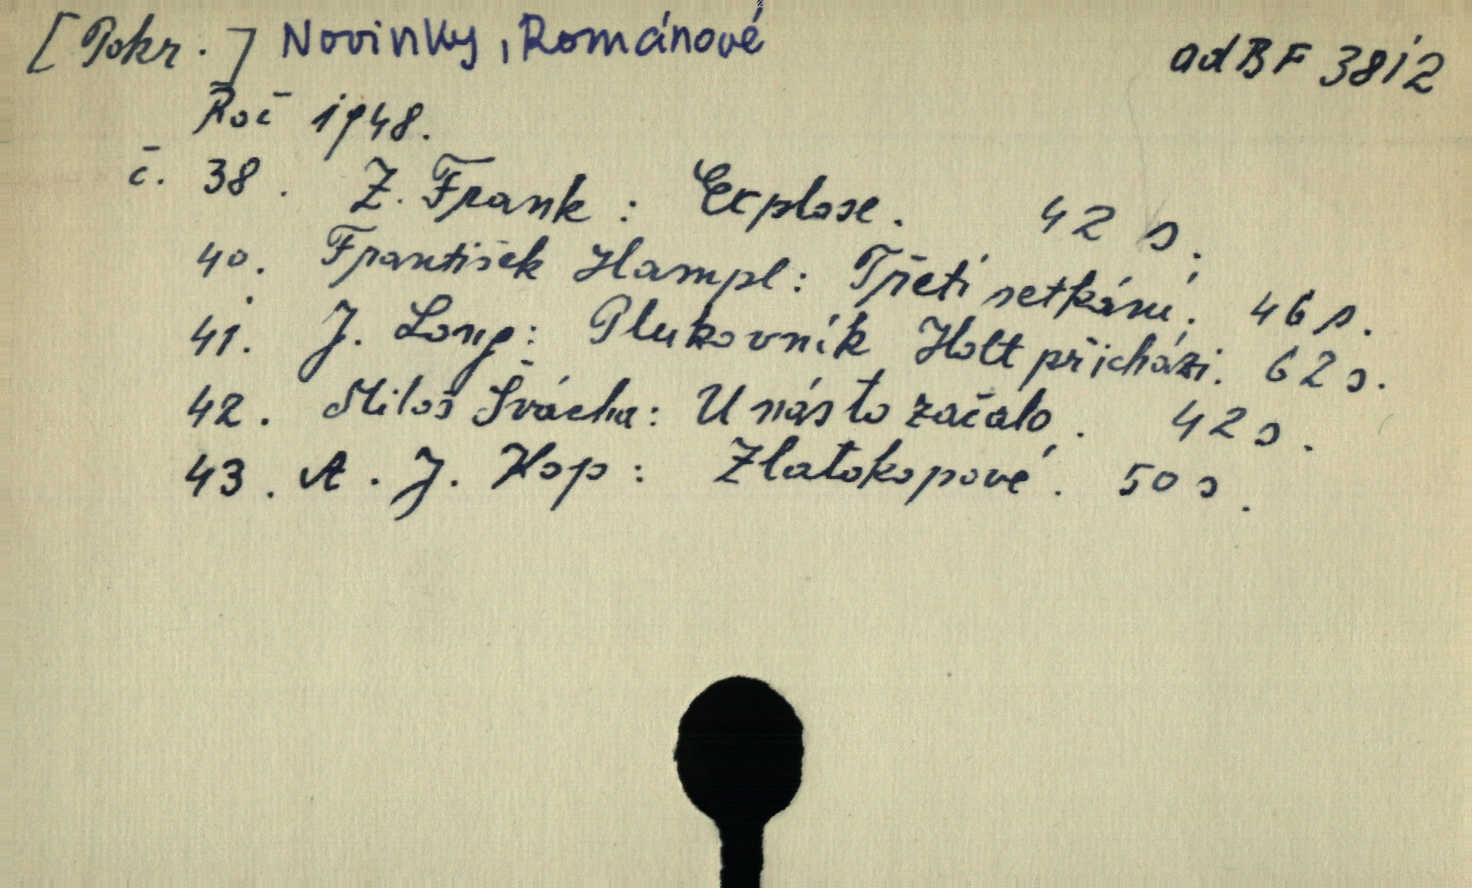 [Pokr.] Novinky, Románové ad BF 3812
Roč 1948.
č. 38. Z. Frank: Explose. 42 s.
40. František Hampl: Třetí setkání. 46 s.
41. J. Long: Plukovník Holt přichází. 62 s.
42. Miloš Švácha: U nás to začalo. 42 s.
43. A. J. Kop: Zlatokopové. 50 s.